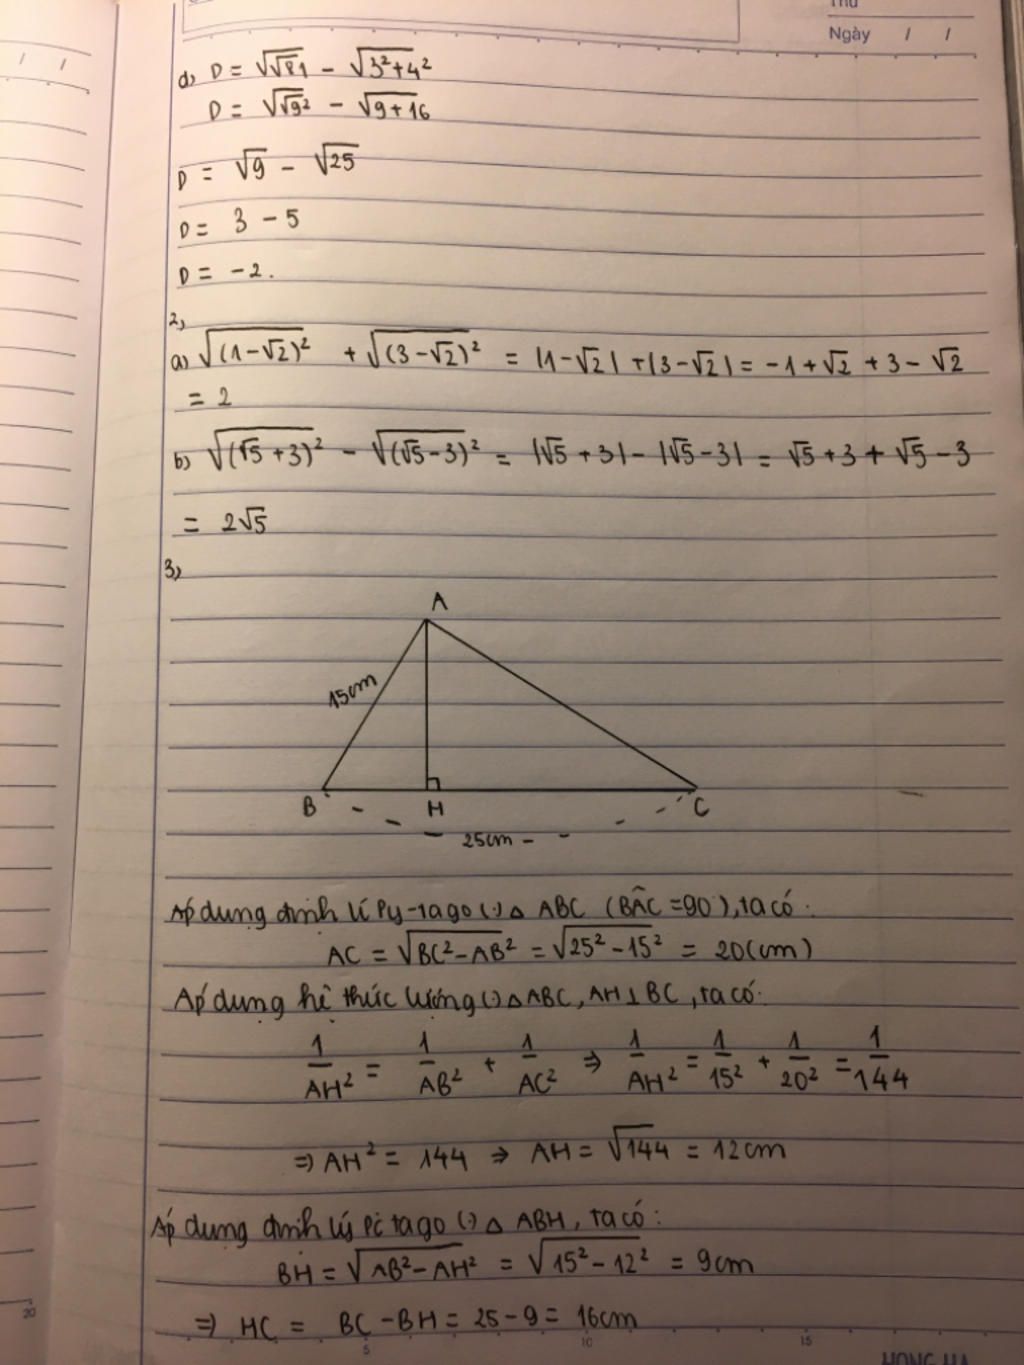 Thứ
Ngày / /
/ /
d) D = √√81 - √3²+4²
D = √√9² - √9+16
D = √9 - √25
D = 3 - 5
D = -2.
2,
a) √(1-√2)² + √(3-√2)² = |1-√2| + |3-√2| = -1+√2 + 3 - √2
= 2
b) √(√5+3)² - √(√5-3)² = |√5+3| - |√5-3| = √5+3+√5-3
= 2√5
3,
A
15cm
B H C
25cm
Áp dụng định lí Py-tago (·) △ ABC (BÂC = 90°), ta có:
AC = √BC²-AB² = √25²-15² = 20(cm)
Áp dụng hệ thức lượng (·) △ ABC, AH⊥BC, ta có:
1/AH² = 1/AB² + 1/AC² ⇒ 1/AH² = 1/15² + 1/20² = 1/144
⇒ AH² = 144 ⇒ AH = √144 = 12cm
Áp dụng định lý Pi tago (·) △ ABH, ta có:
BH = √AB²-AH² = √15²-12² = 9cm
⇒ HC = BC - BH = 25 - 9 = 16cm
20 5 10 15
HONG HA